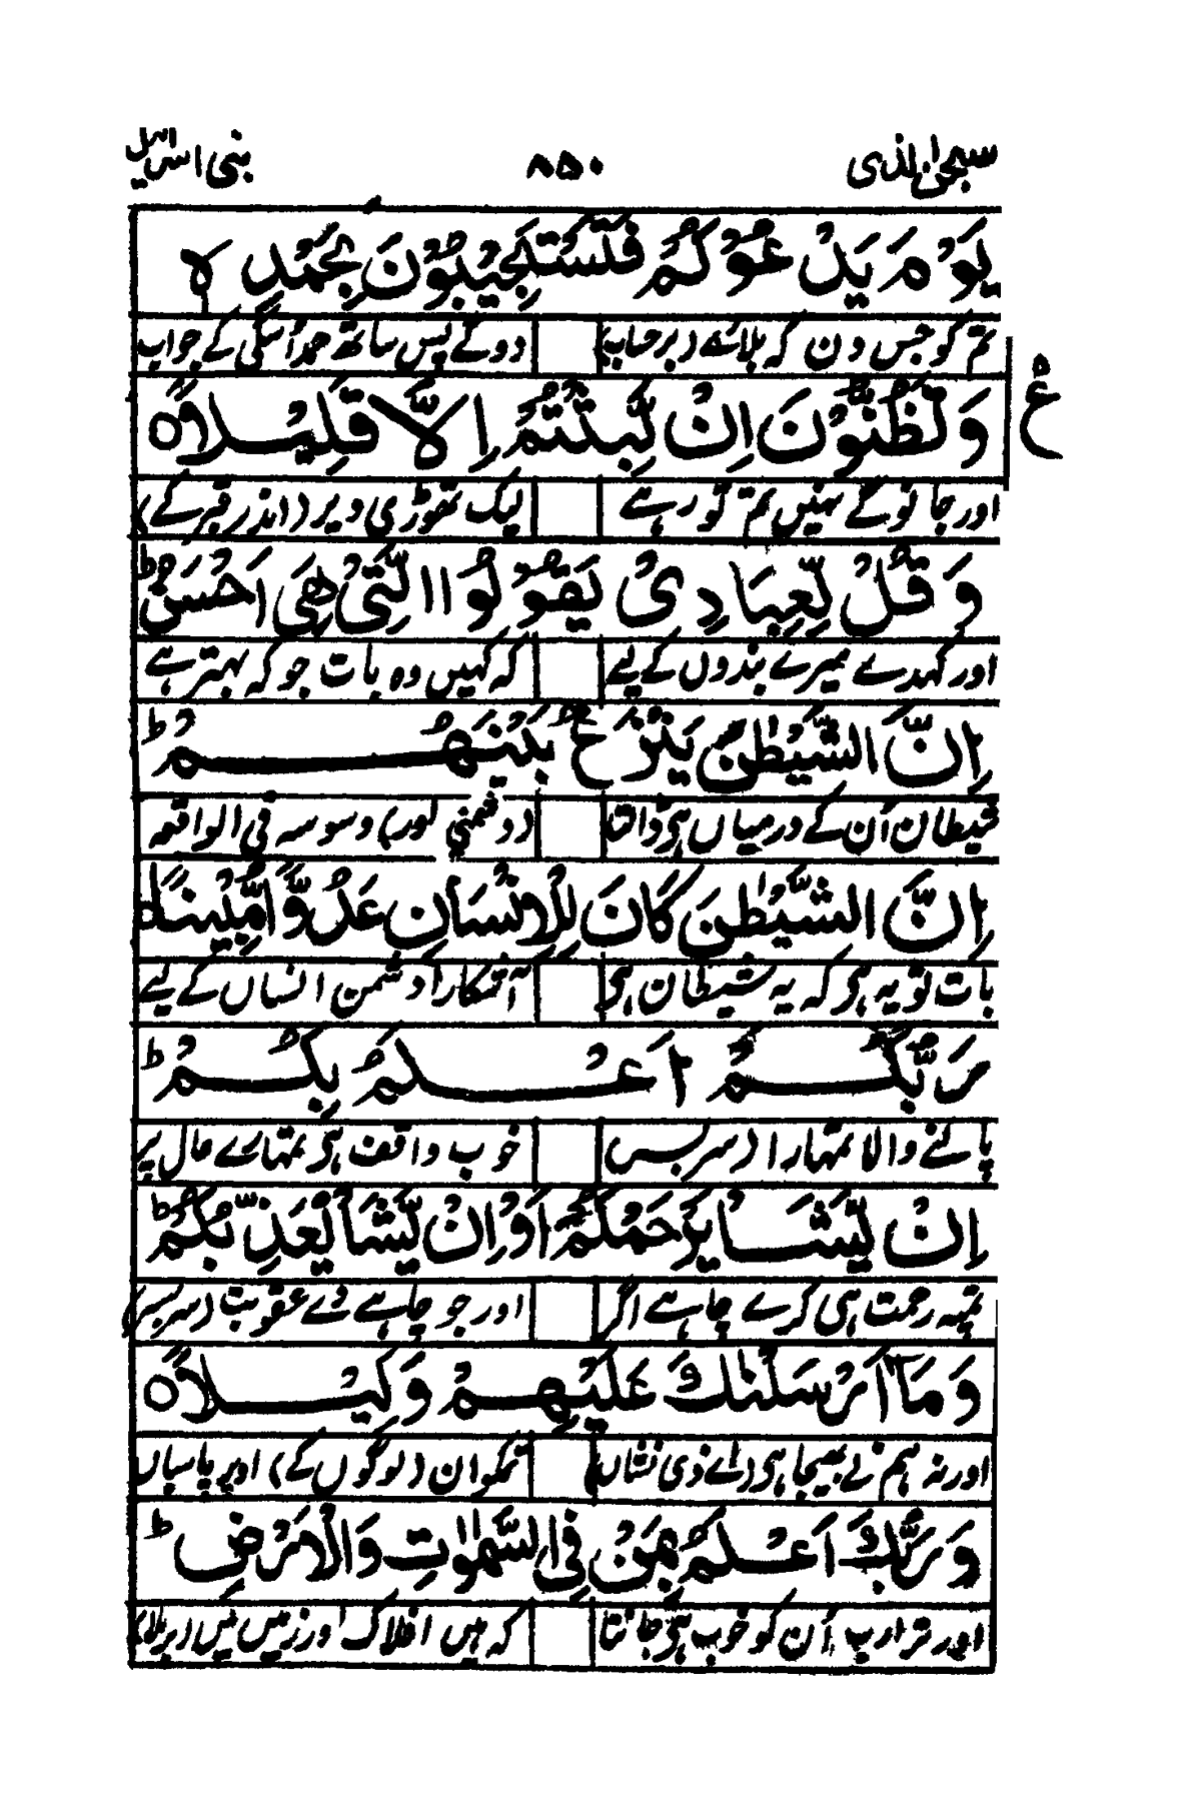 سبحٰن الذی ۸۵۰ بنی اسرائیل
یَوْمَ یَدْعُوْکُمْ فَتَسْتَجِیْبُوْنَ بِحَمْدِہٖ
تم کو جس دن کہ بلائے (بر حساب) دو گے پس ساتھ حمد اُسکی کے جواب
وَتَظُنُّوْنَ اِنْ لَّبِثْتُمْ اِلَّا قَلِیْلًا ہ
ع
اور جا نو گے نہیں تم تو رہے لیک تھوڑی دیر (اندر قبر کے)
وَ قُلْ لِّعِبَادِیْ یَقُوْلُوا الَّتِیْ ھِیَ اَحْسَنُ ط
اور کہدے میرے بندوں کے لیے کہ کہیں وہ بات جو کہ بہتر ہے
اِنَّ الشَّیْطٰنَ یَنْزَغُ بَیْنَھُمْ ط
شیطان اُن کے درمیاں ہی ڈالتا (دشمنی اور) وسوسہ فی الواقعہ
اِنَّ الشَّیْطٰنَ کَانَ لِلْاِنْسَانِ عَدُوًّا مُّبِیْنًا ہ
بات تو یہ ہی کہ یہ شیطان ہی آشکارا دشمن انساں کے لیے
رَبُّکُمْ اَعْلَمُ بِکُمْ ط
پالنے والا تمہارا (سربسر) خوب واقف ہی تمہارے حال پر
اِنْ یَّشَاْ یَرْحَمْکُمْ اَوْ اِنْ یَّشَاْ یُعَذِّبْکُمْ ط
تمپہ رحمت ہی کرے چاہے اگر اور جو چاہے دے عقوبت (سربسر)
وَمَآ اَرْسَلْنٰکَ عَلَیْھِمْ وَکِیْلًا ہ
اور نہ ہم نے بھیجا ہی (اے ذی نشاں) تمکو ان (لوگوں کے) اوپر پاسباں
وَرَبُّکَ اَعْلَمُ بِمَنْ فِی السَّمٰوٰتِ وَالْاَرْضِ ط
اور ترا رب اُن کو خوب ہی جانتا کہ ہیں افلاک اور زمیں میں (برملا)